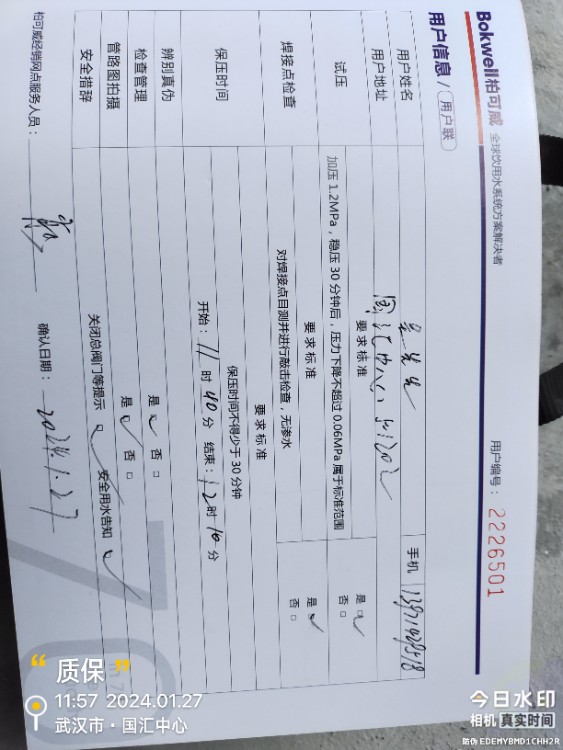 Bokwell柏可威 全球饮用水系统方案解决者
用户编号：2226501
用户信息/用户联
用户姓名 吴先生 手机
用户地址 国汇中心
试压 要求标准
加压1.2MPa，稳压30分钟后，压力下降不超过0.06MPa属于标准范围 是 否
焊接点检查 要求标准
对焊接点目测并进行敲击检查，无渗水 是 否
保压时间 要求标准
保压时间不得少于30分钟
开始：11时40分 结束：12时10分
辨别真伪 是 否
检查管理 是 否
管路图拍摄
安全措辞 关闭总阀门等提示 安全用水告知
柏可威经销网点服务人员： 确认日期：2024.1.27
“质保”
11:57 2024.01.27
武汉市·国汇中心
今日水印
相机 真实时间
防伪 EDEMYBMD1CHH2R